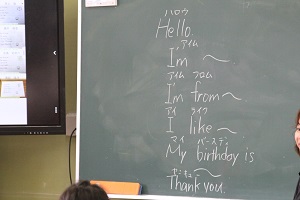 ハロウ
Hello.
アイム
I'm 〜
アイム フロム
I'm from 〜
アイ ライク
I like 〜
マイ バースデイ
My birthday is
サンキュー
Thank you.